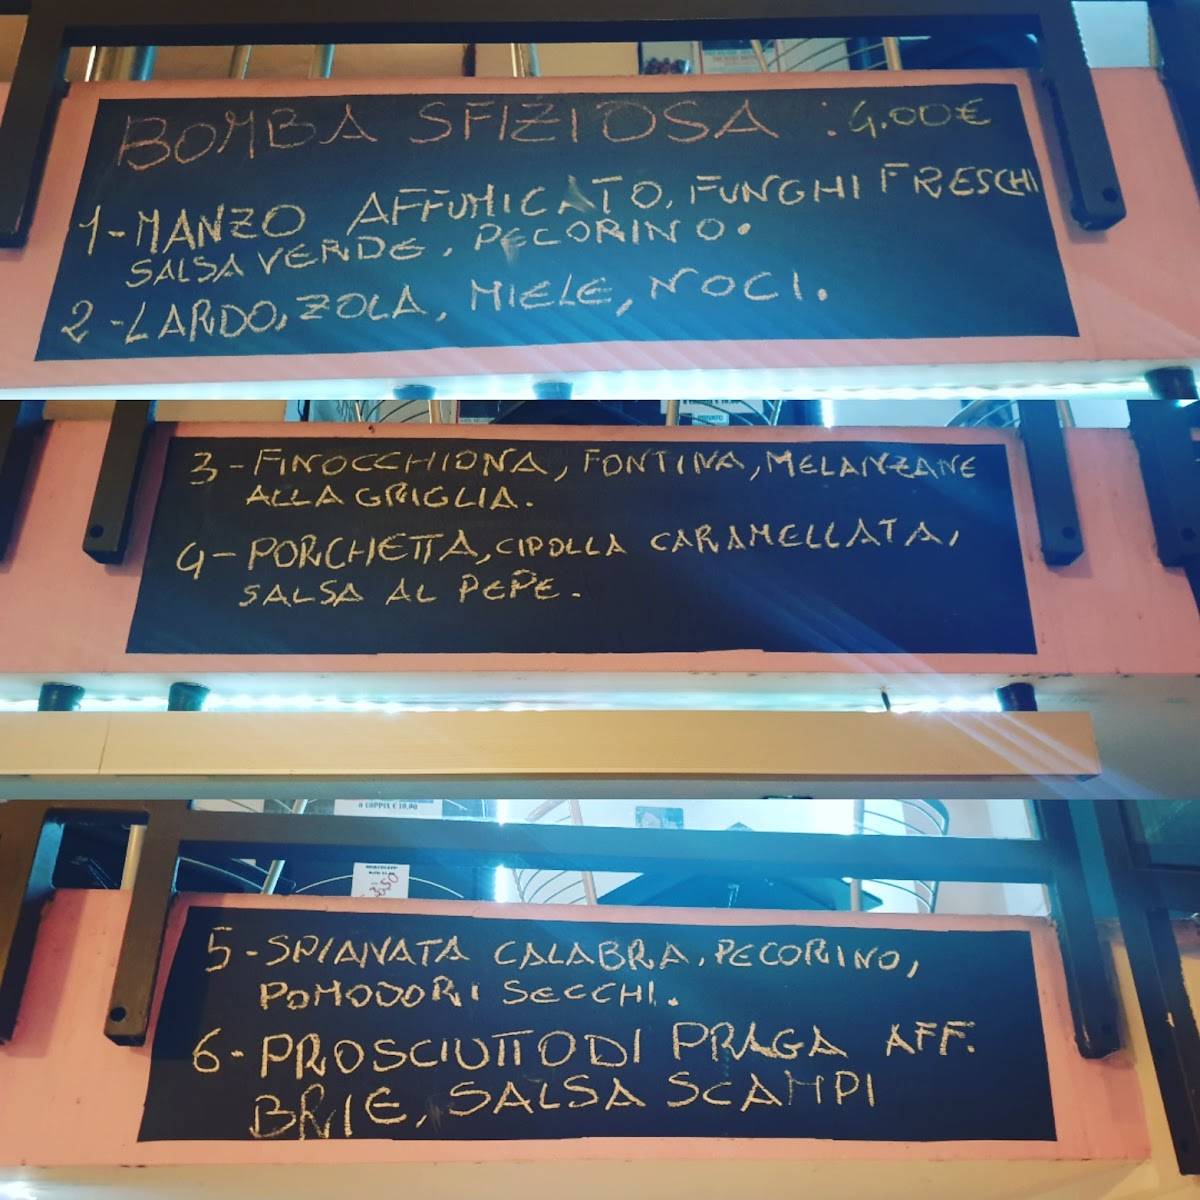 BOMBA SFIZIOSA : 4.00€
1-MANZO AFFUMICATO, FUNGHI FRESCHI
SALSA VERDE, PECORINO.
2-LARDO, ZOLA, MIELE, NOCI.
3-FINOCCHIONA, FONTINA, MELANZANE
ALLA GRIGLIA.
4-PORCHETTA, CIPOLLA CARAMELLATA,
SALSA AL PEPE.
A COPPIA € 10,00
3.50
5-SPIANATA CALABRA, PECORINO,
POMODORI SECCHI.
6-PROSCIUTTO DI PRAGA AFF.
BRIE, SALSA SCAMPI